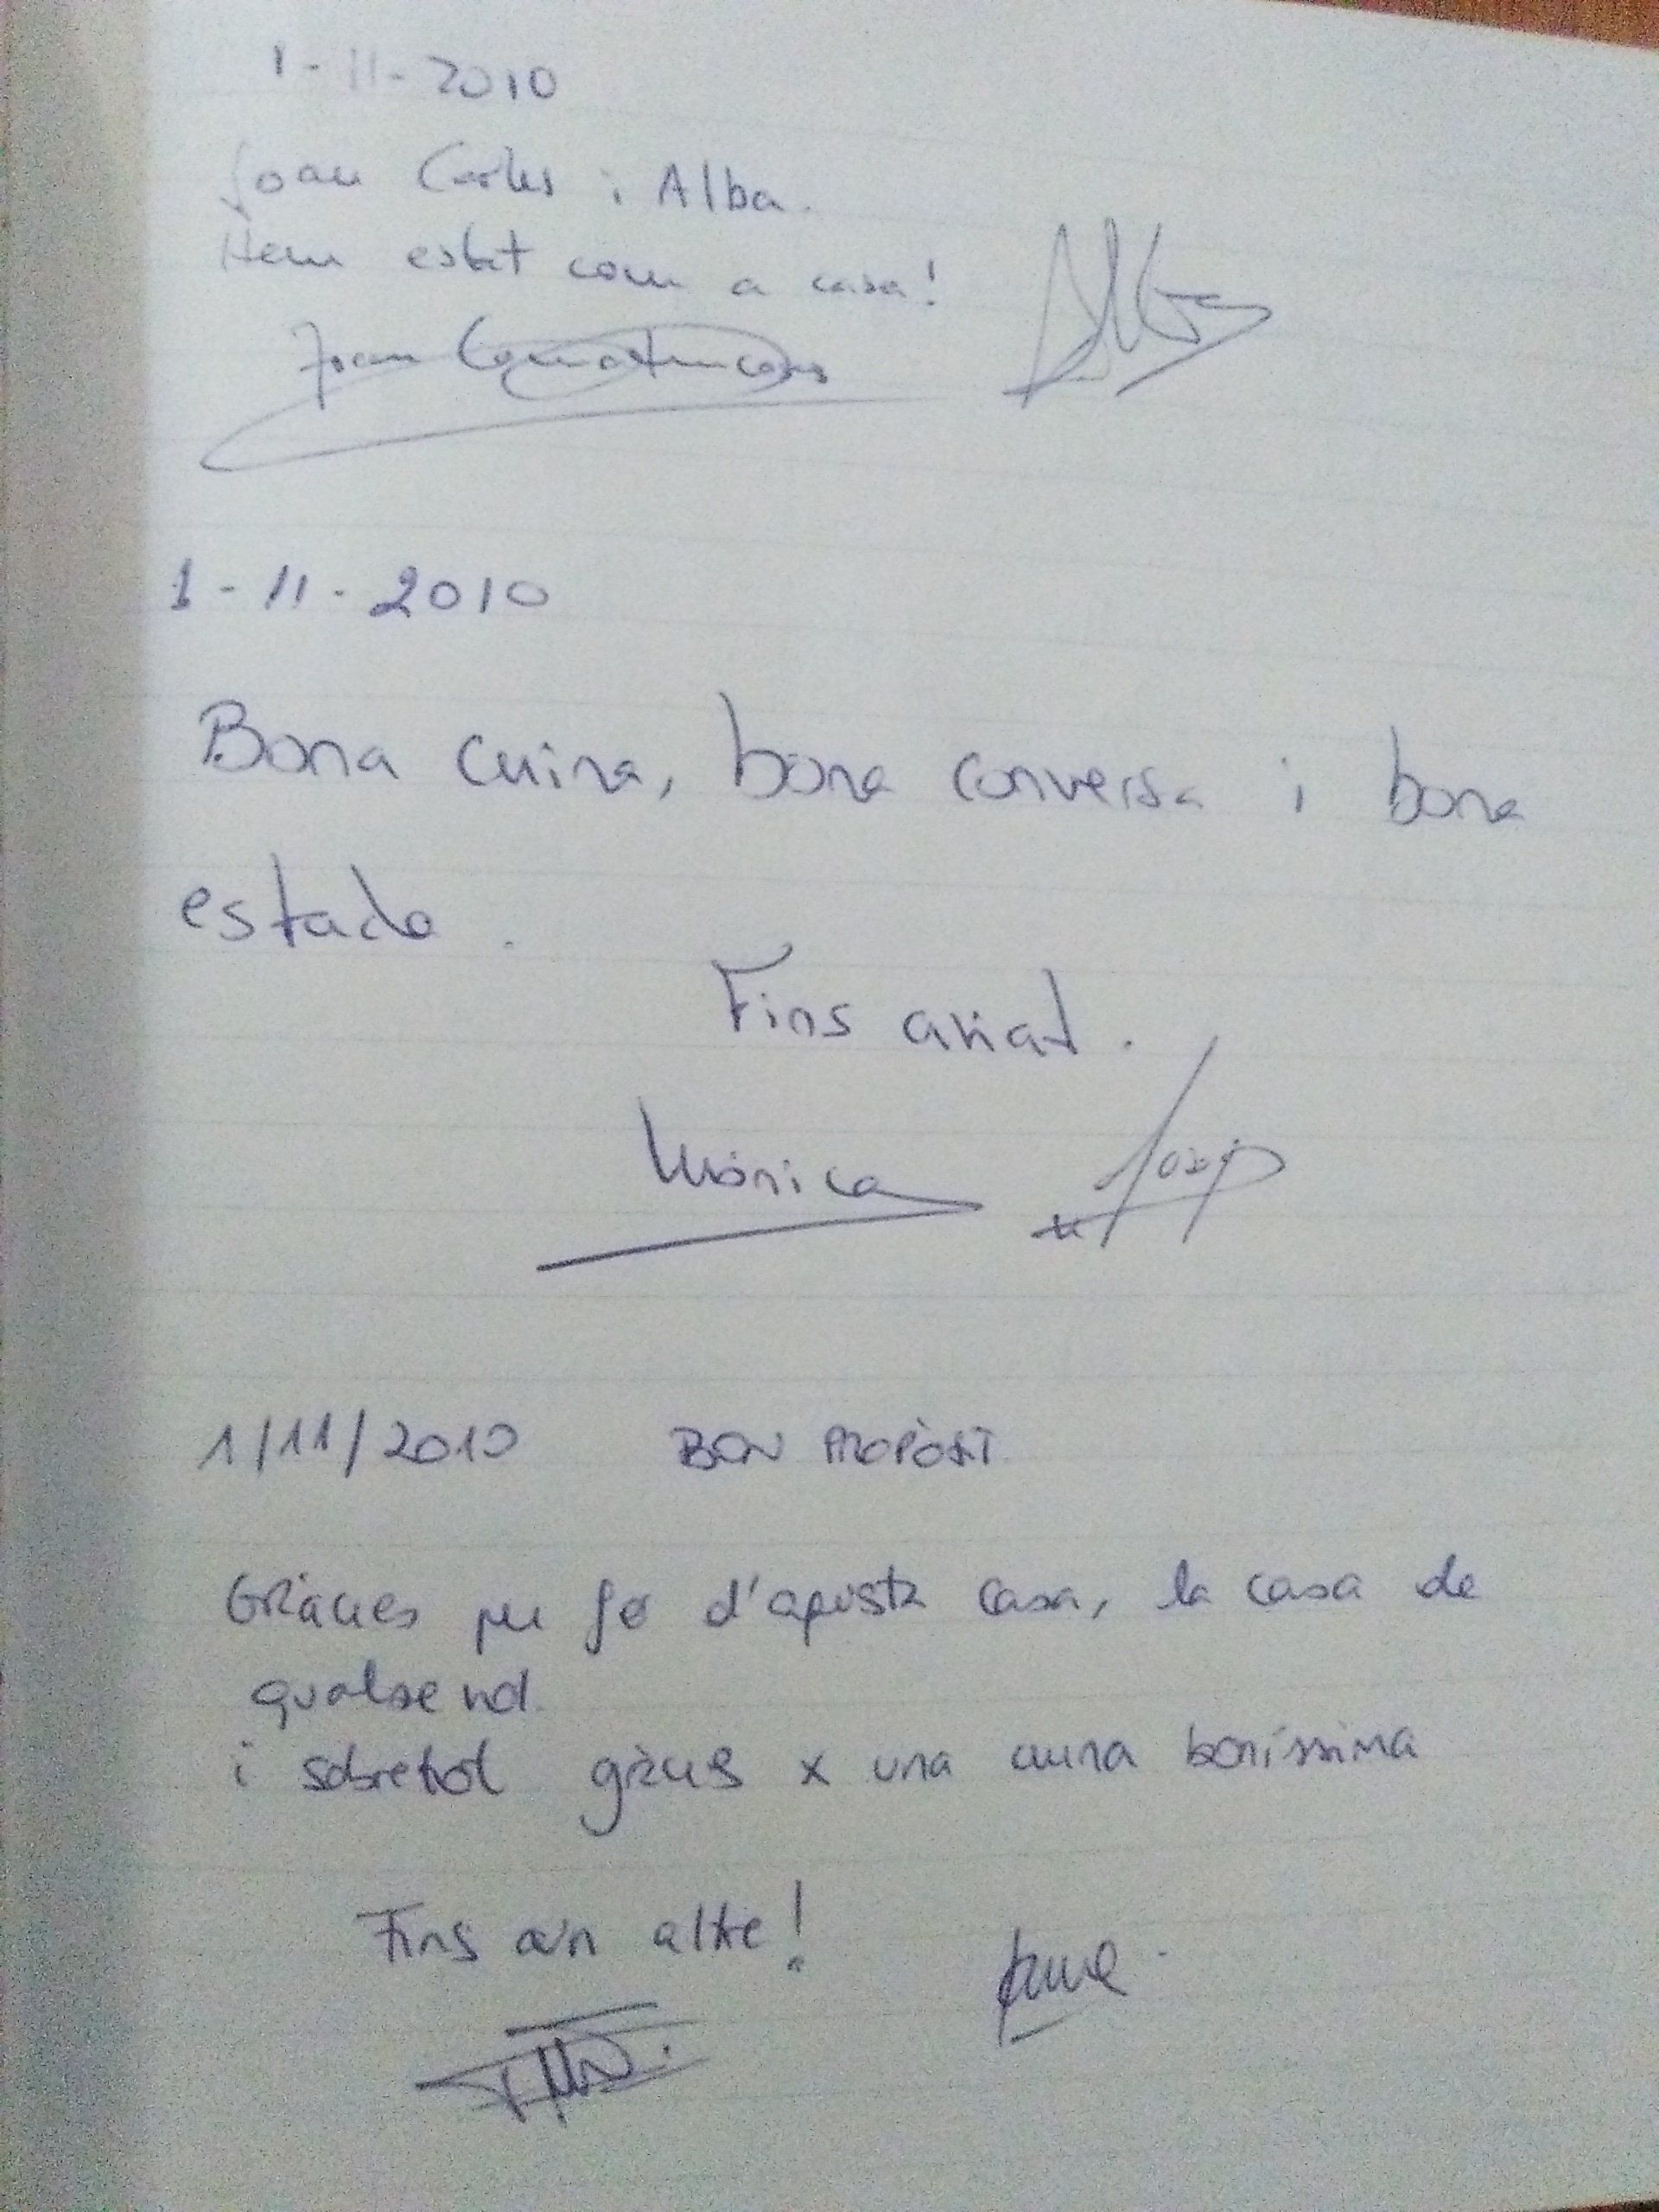 1-11-2010
Joan Carles i Alba.
Hem estat com a casa!
Joan
Alba
1-11-2010
Bona cuina, bona conversa i bona
estada.
Fins aviat.
Mònica Josep
1/11/2010 BON PROPÒSIT
Gràcies per fer d'aquesta casa, la casa de
qualsevol.
i sobretot gràcies x una cuina boníssima
Fins a'n altre!